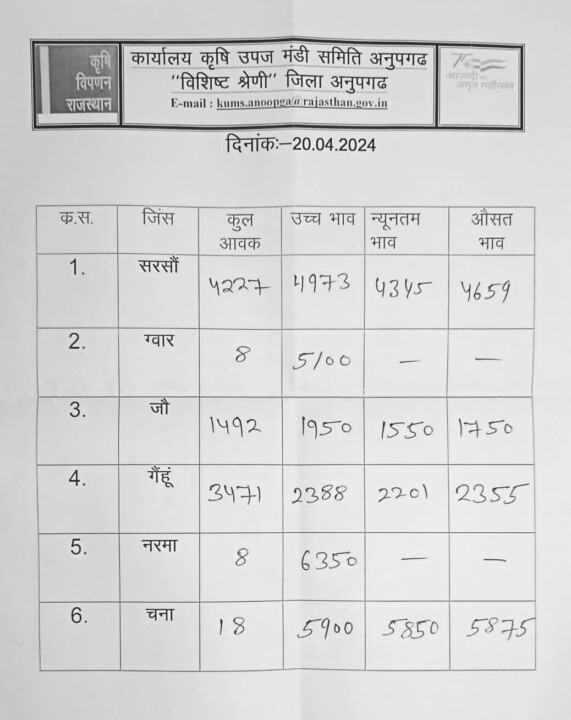 कृषि
विपणन
राजस्थान
कार्यालय कृषि उपज मंडी समिति अनुपगढ
"विशिष्ट श्रेणी" जिला अनुपगढ
E-mail : kums.anoopga@rajasthan.gov.in
75
आज़ादी का
अमृत महोत्सव
दिनांकः–20.04.2024
क.स. जिंस कुल आवक उच्च भाव न्यूनतम भाव औसत भाव
1. सरसौं 4227 4973 4345 4659
2. ग्वार 8 5100 — —
3. जौ 1492 1950 1550 1750
4. गैंहूं 3471 2388 2201 2355
5. नरमा 8 6350 — —
6. चना 18 5900 5850 5875